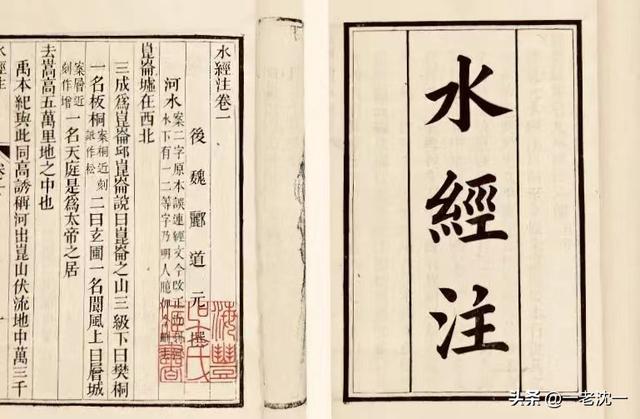 水經注
水經注卷一
後魏酈道元撰
河水 案二字原本誤連經文今改正
水下有一二等字乃明人臆加今刪
崑崙墟在西北
三成爲崑崙邱崑崙說曰崑崙之山三級下曰樊桐
一名板桐 案桐近刻訛作松 二曰玄圃一名閬風上曰層城
案層近刻作增 一名天庭是爲太帝之居
去嵩高五萬里地之中也
禹本紀與此同高誘稱河出崑山伏流地中萬三千
水經注
海豐
头条 @一老沈一